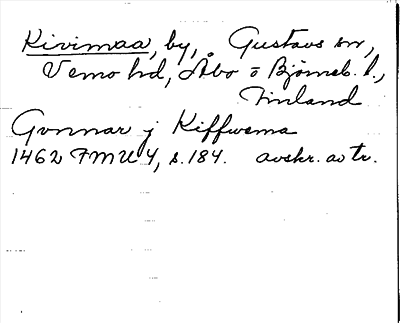 Kivimaa, by, Gustavs sn,
Vemo hd, Åbo o Björneb. l.,
Finland
Gvnnar j Kiffwema
1462 FMU 4, s. 184. avskr. av tr.